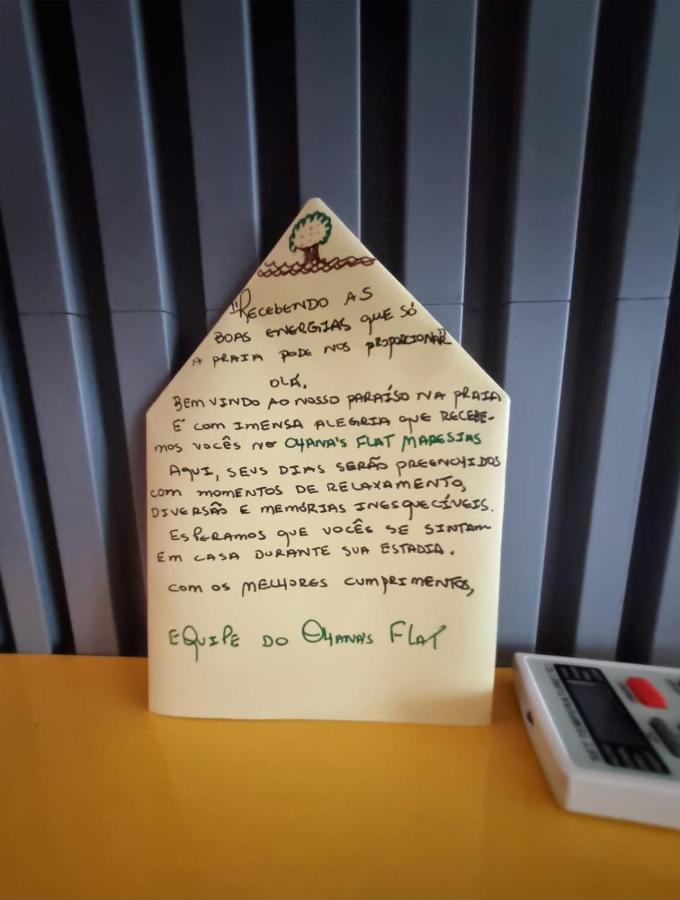 "RECEBENDO AS
BOAS ENERGIAS QUE SÓ
A PRAIA PODE NOS PROPORCIONAR
OLÁ,
BEM VINDO AO NOSSO PARAÍSO NA PRAIA
É COM IMENSA ALEGRIA QUE RECEBE-
MOS VOCÊS NO OHANA'S FLAT MARESIAS
AQUI, SEUS DIAS SERÃO PREENCHIDOS
COM MOMENTOS DE RELAXAMENTO,
DIVERSÃO E MEMÓRIAS INESQUECÍVEIS.
ESPERAMOS QUE VOCÊS SE SINTAM
EM CASA DURANTE SUA ESTADIA.
COM OS MELHORES CUMPRIMENTOS,
EQUIPE DO OHANA'S FLAT